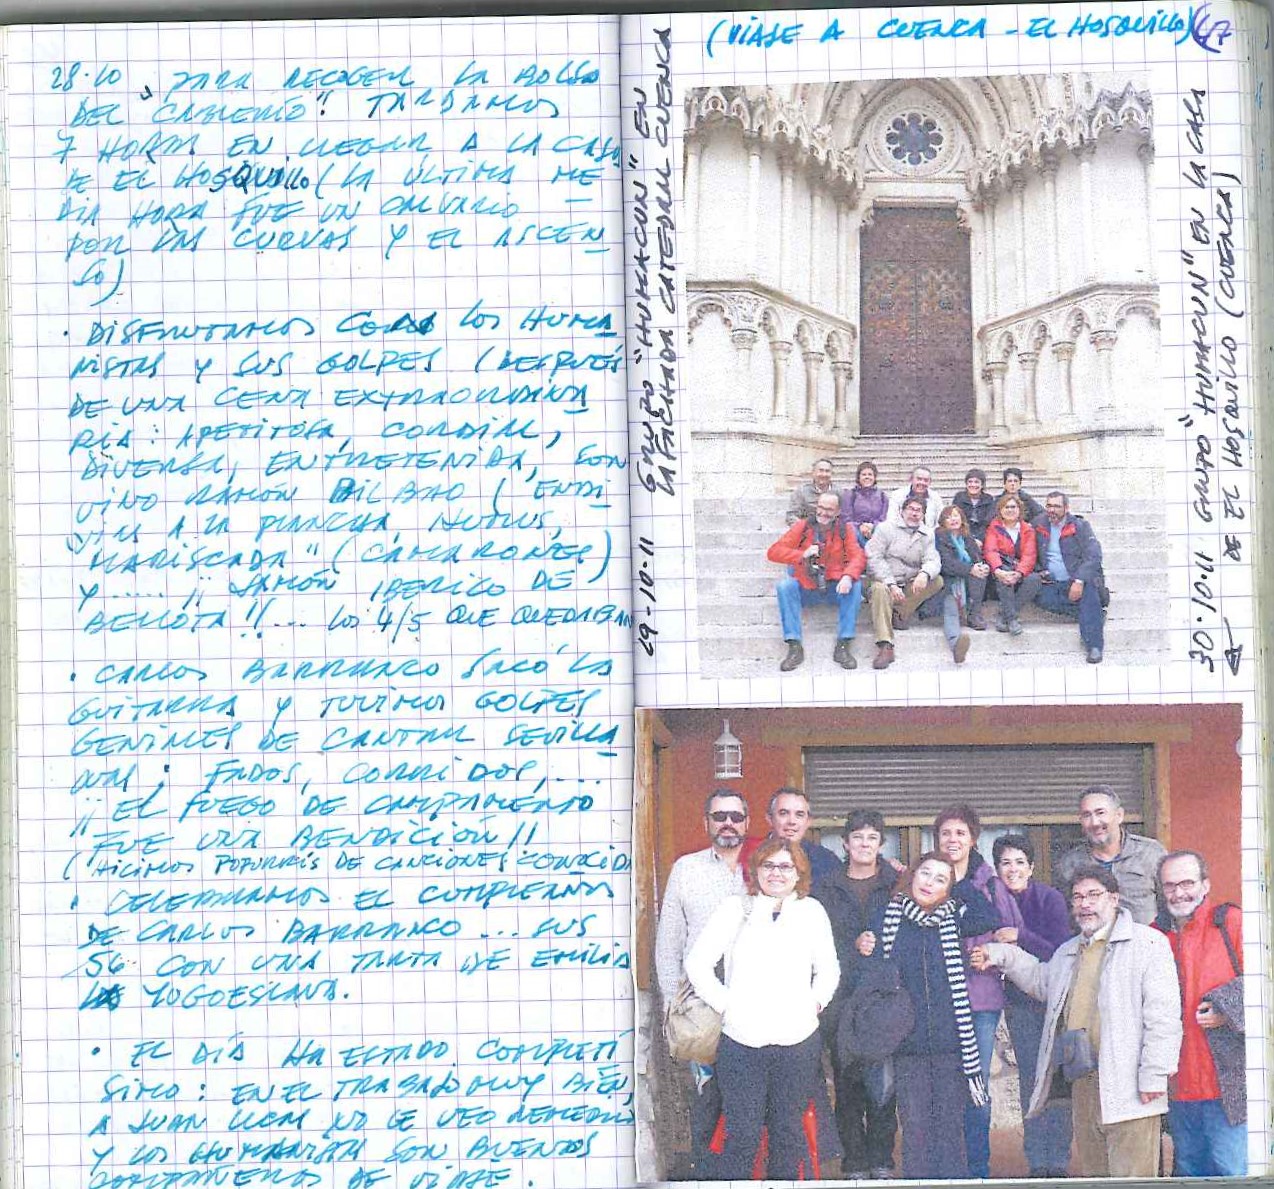 28·10 PARA RECOGER LA BOLSA
DEL "CABLERÍO". TARDAMOS
7 HORAS EN LLEGAR A LA CASA
DE EL HOSQUILLO (LA ÚLTIMA ME
DIA HORA FUE UN CALVARIO
POR LAS CURVAS Y EL ASCEN
SO)
· DISFRUTAMOS CON LOS HUMA
NISTAS Y SUS GOLPES (DESPUÉS
DE UNA CENA EXTRAORDINA
RIA: APETITOSA, CORDIAL,
DIVERSA, ENTRETENIDA, CON
VINO RAMÓN BILBAO (ENDI
VIAS A LA PLANCHA, HUEVOS,
"MARISCADA" (CAMARONES)
Y ..... ¡¡ JAMÓN IBERICO DE
BELLOTA!!... LOS 4/5 QUE QUEDABAN
· CARLOS BARRANCO SACÓ LA
GUITARRA Y TUVIMOS GOLPES
GENIALES DE CANTAR SEVILLA
NAS; FADOS, CORRIDOS, ...
¡¡ EL FUEGO DE CAMPAMENTO
FUE UNA BENDICIÓN !!
(HICIMOS POPURRÍS DE CANCIONES CONOCID
· CELEBRAMOS EL CUMPLEAÑOS
DE CARLOS BARRANCO ... SUS
56 CON UNA TARTA DE EMILIA
YUGOESLAVA.
· EL DÍA HA ESTADO COMPLETÍ
SIMO: EN EL TRABAJO MUY BIEN,
A JUAN NO LE VEO
Y LOS HUMANISTAS SON BUENOS
COMPAÑEROS DE VIAJE.
(VIAJE A CUENCA - EL HOSQUILLO) 47
29-10-11 GRUPO "HUMACUN" EN
LA FACHADA CATEDRAL CUENCA
30·10·11 GRUPO "HUMACUN" EN LA CASA
← DE EL HOSQUILLO (CUENCA)